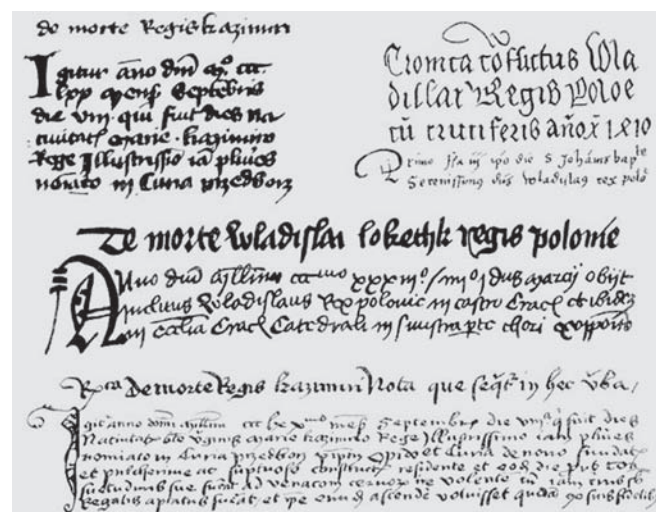 de morte Regis kazimiri
Igitur año dm̄ mº. ccc
lxx mens̄ Septembris
die viii. qui fuit dies na
tiuitatꝭ marie. kazimiro
Rege Illustrissīo iā plu͞ies
noīato in Curia przedborz
Cronica cōflictus Wla
dislai Regis Poloē
cū cruciferis año x̄i 1410
Primo ipo die S Johānis bapte
Serenissimus dn̄s wladislaꝰ rex polō
De morte wladislai lokethk regis polonie
Anno dn̄i Millīmo cccmo xxxiiiº/ iiiiº jdus marcij obijt
inclitus Wladislaus Rex polonie in castro Cracꝭ et ibidē
in eccl̄ia Cracꝭ Cathedrali in sinistra p̱te chori ex opposito
Rca De morte Regis kazimiri Nota que seq̄t̄ in hec v̄ba,
Igit̄ anno dom̄i millīmo ccc lxxmo mens̄ Septembris die viiiª q̄ fuit dies
Natiuitatꝭ bt̄e v̄ginis marie kazimiro Rege Jllustrissimo iam plu͞ies
nomīato in Curia przedborz et Curia de nouo fundatꝭ
et pulcherime ac sūptuose constructꝭ residente et eodē die p̱ut cōs
suetudinis sue fuerat ad venacōem ceruoꝝ ire volente cū iam currꝰ
Regalis aptatus fuerat, et ip̄e eundē ascendē voluisset quidā ex suis fidelibꝰ